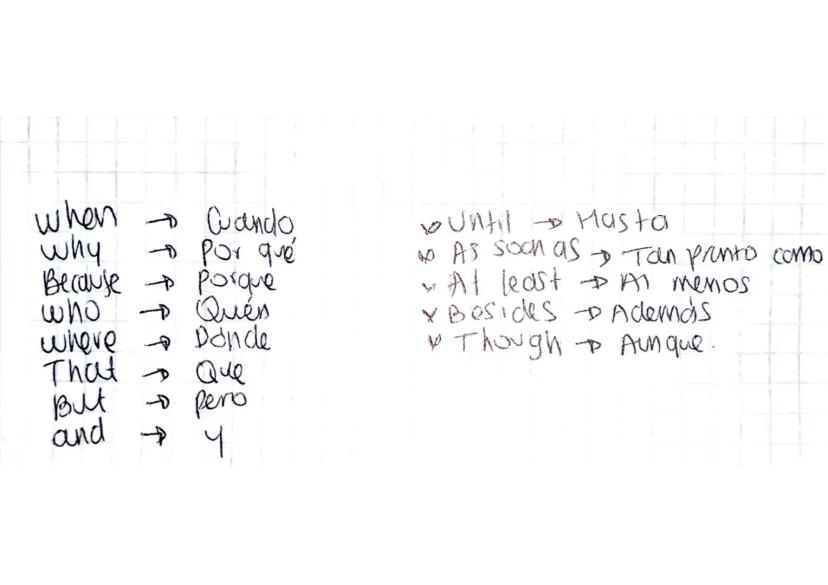 when → Cuando
why → Por qué
Because → Porque
who → Quén
where → Dónde
That → Que
But → pero
and → y
Until → Hasta
As soon as → Tan pronto como
At least → Al menos
Besides → Además
Though → Aunque.